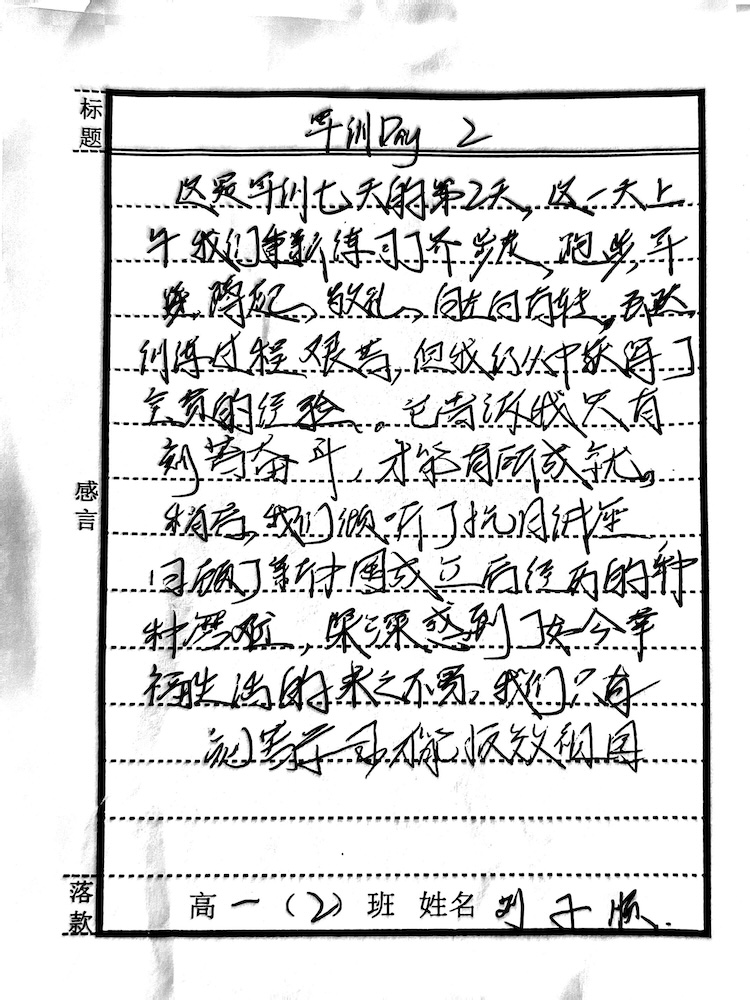 标题
军训Day 2
这是军训七天的第2天,这一天上
午我们重新练习了齐步走、跑步,军
蹲起、敬礼、向左向右转,虽然
训练过程艰苦,但我们从中获得了
宝贵的经验。它告诉我只有
刻苦奋斗,才能有所成就。
稍后,我们倾听了抗日讲座
回顾了新中国成立后经历的种
种磨难,深深感到了如今幸
福生活的来之不易,我们只有
刻苦学习才能报效祖国
感言
落款
高一(2)班 姓名 刘子顺.